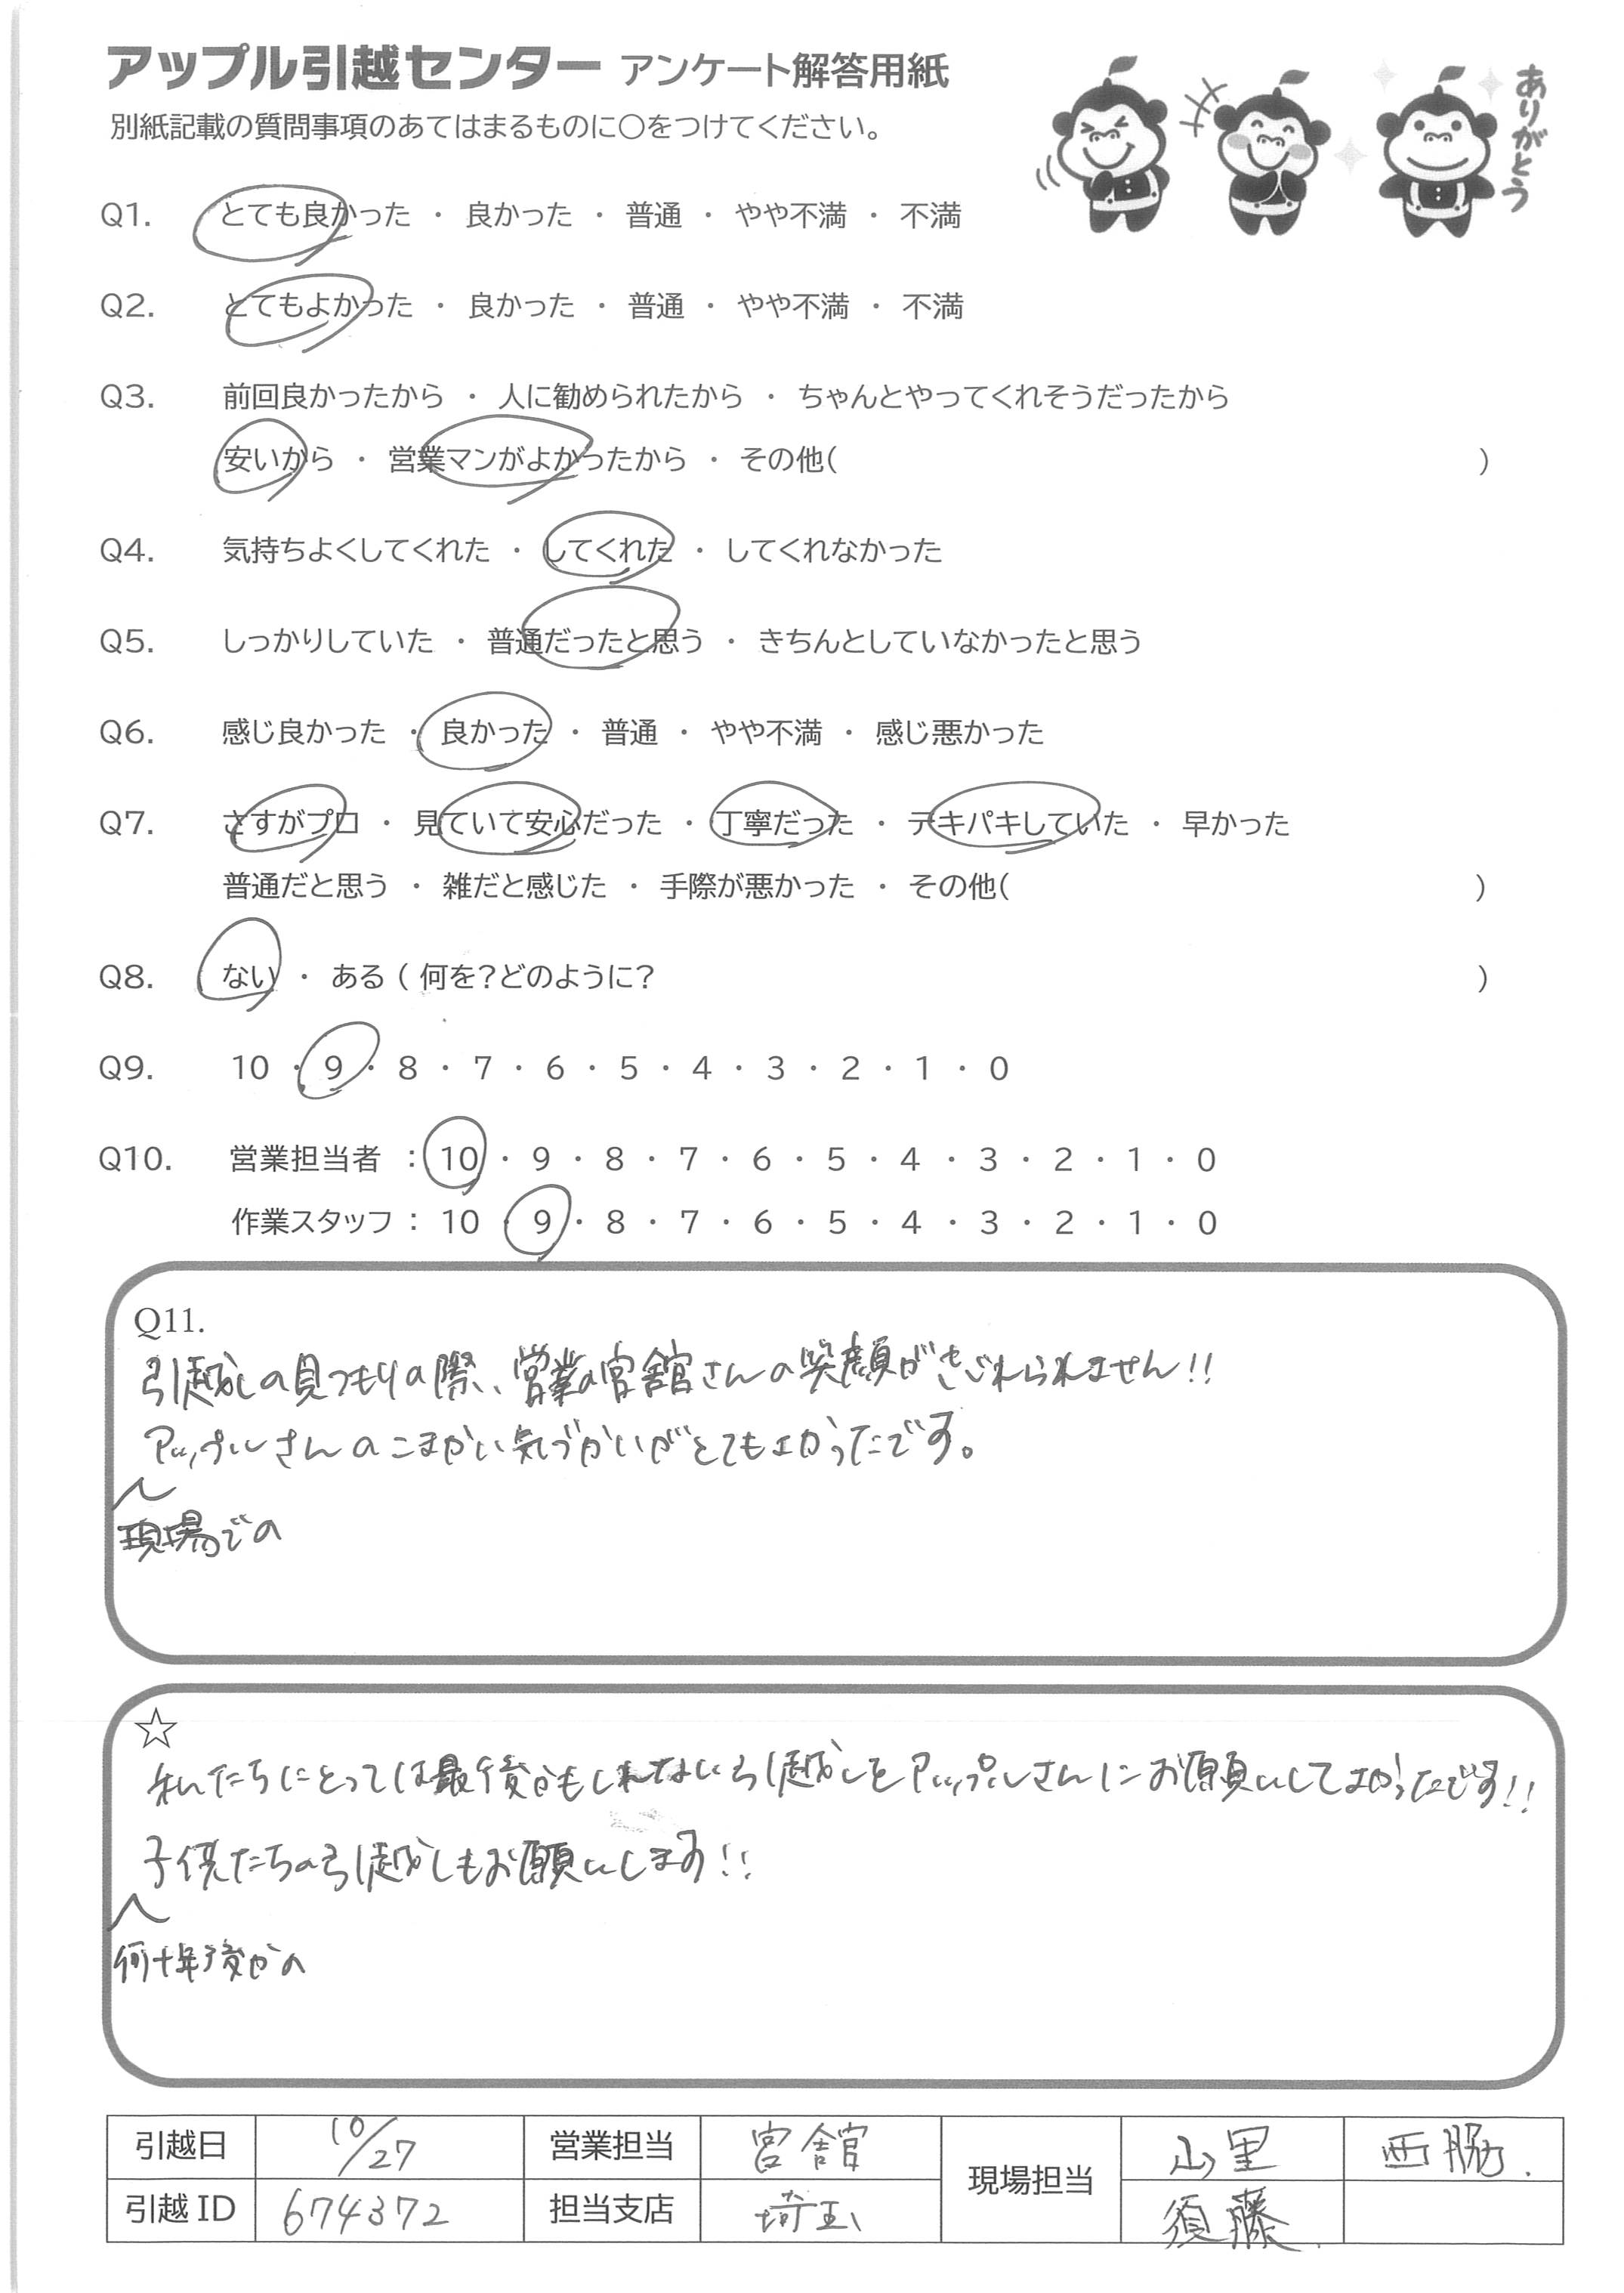 アップル引越センター アンケート解答用紙
ありがとう
別紙記載の質問事項のあてはまるものに○をつけてください。
Q1. とても良かった ・ 良かった ・ 普通 ・ やや不満 ・ 不満
Q2. とてもよかった ・ 良かった ・ 普通 ・ やや不満 ・ 不満
Q3. 前回良かったから ・ 人に勧められたから ・ ちゃんとやってくれそうだったから
安いから ・ 営業マンがよかったから ・ その他( )
Q4. 気持ちよくしてくれた ・ してくれた ・ してくれなかった
Q5. しっかりしていた ・ 普通だったと思う ・ きちんとしていなかったと思う
Q6. 感じ良かった ・ 良かった ・ 普通 ・ やや不満 ・ 感じ悪かった
Q7. さすがプロ ・ 見ていて安心だった ・ 丁寧だった ・ テキパキしていた ・ 早かった
普通だと思う ・ 雑だと感じた ・ 手際が悪かった ・ その他( )
Q8. ない ・ ある ( 何を?どのように? )
Q9. 10 ・ 9 ・ 8 ・ 7 ・ 6 ・ 5 ・ 4 ・ 3 ・ 2 ・ 1 ・ 0
Q10. 営業担当者 : 10 ・ 9 ・ 8 ・ 7 ・ 6 ・ 5 ・ 4 ・ 3 ・ 2 ・ 1 ・ 0
作業スタッフ : 10 ・ 9 ・ 8 ・ 7 ・ 6 ・ 5 ・ 4 ・ 3 ・ 2 ・ 1 ・ 0
Q11.
引越しの見つもりの際、営業の宮舘さんの笑顔がわすれられません!!
アップルさんのこまかい気づかいがとてもよかったです。
現場での
☆
私たちにとっては最後かもしれない引越しをアップルさんにお願いしてよかったです!!
子供たちの引越しもお願いします!!
何十年後かの
引越日 10/27 営業担当 宮舘 現場担当 山里 西脇.
引越ID 674372 担当支店 埼玉 須藤.